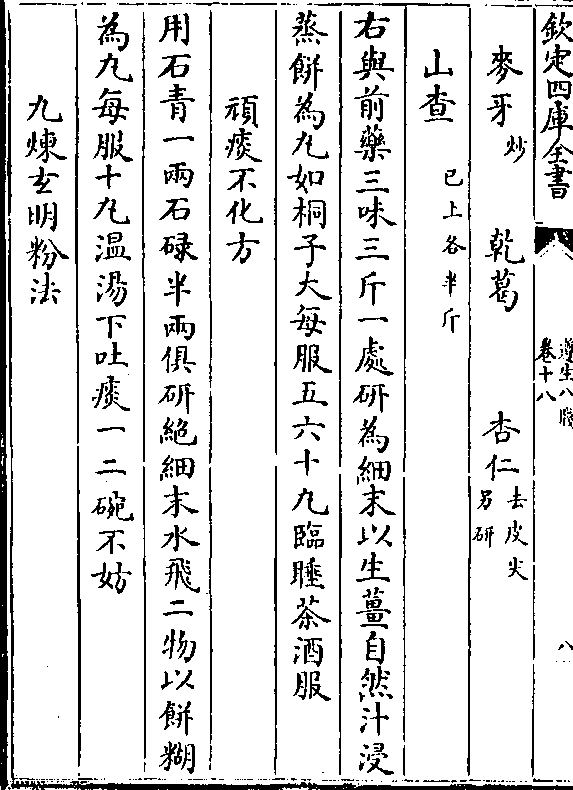 欽定四庫全書
遵生八牋
卷十八
八
麥牙炒　乾葛　杏仁去皮尖另研
山查已上各半斤
右與前藥三味三斤一處研為細末以生薑自然汁浸
蒸餅為丸如桐子大每服五六十丸臨睡茶酒服
頑痰不化方
用石青一兩石碌半兩俱研絶細末水飛二物以餅糊
為丸每服十丸温湯下吐痰一二碗不妨
九煉玄明粉法